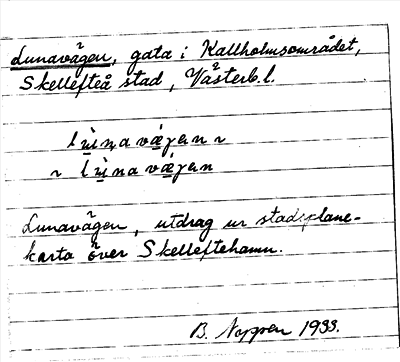 Lunavägen, gata i Kallholmsområdet,
Skellefteå stad, Västerb.l.
lùnavä́gen ~
~ lùnavä́gen
Lunavägen, utdrag ur stadsplane-
karta över Skelleftehamn.
B. Nygren 1933.